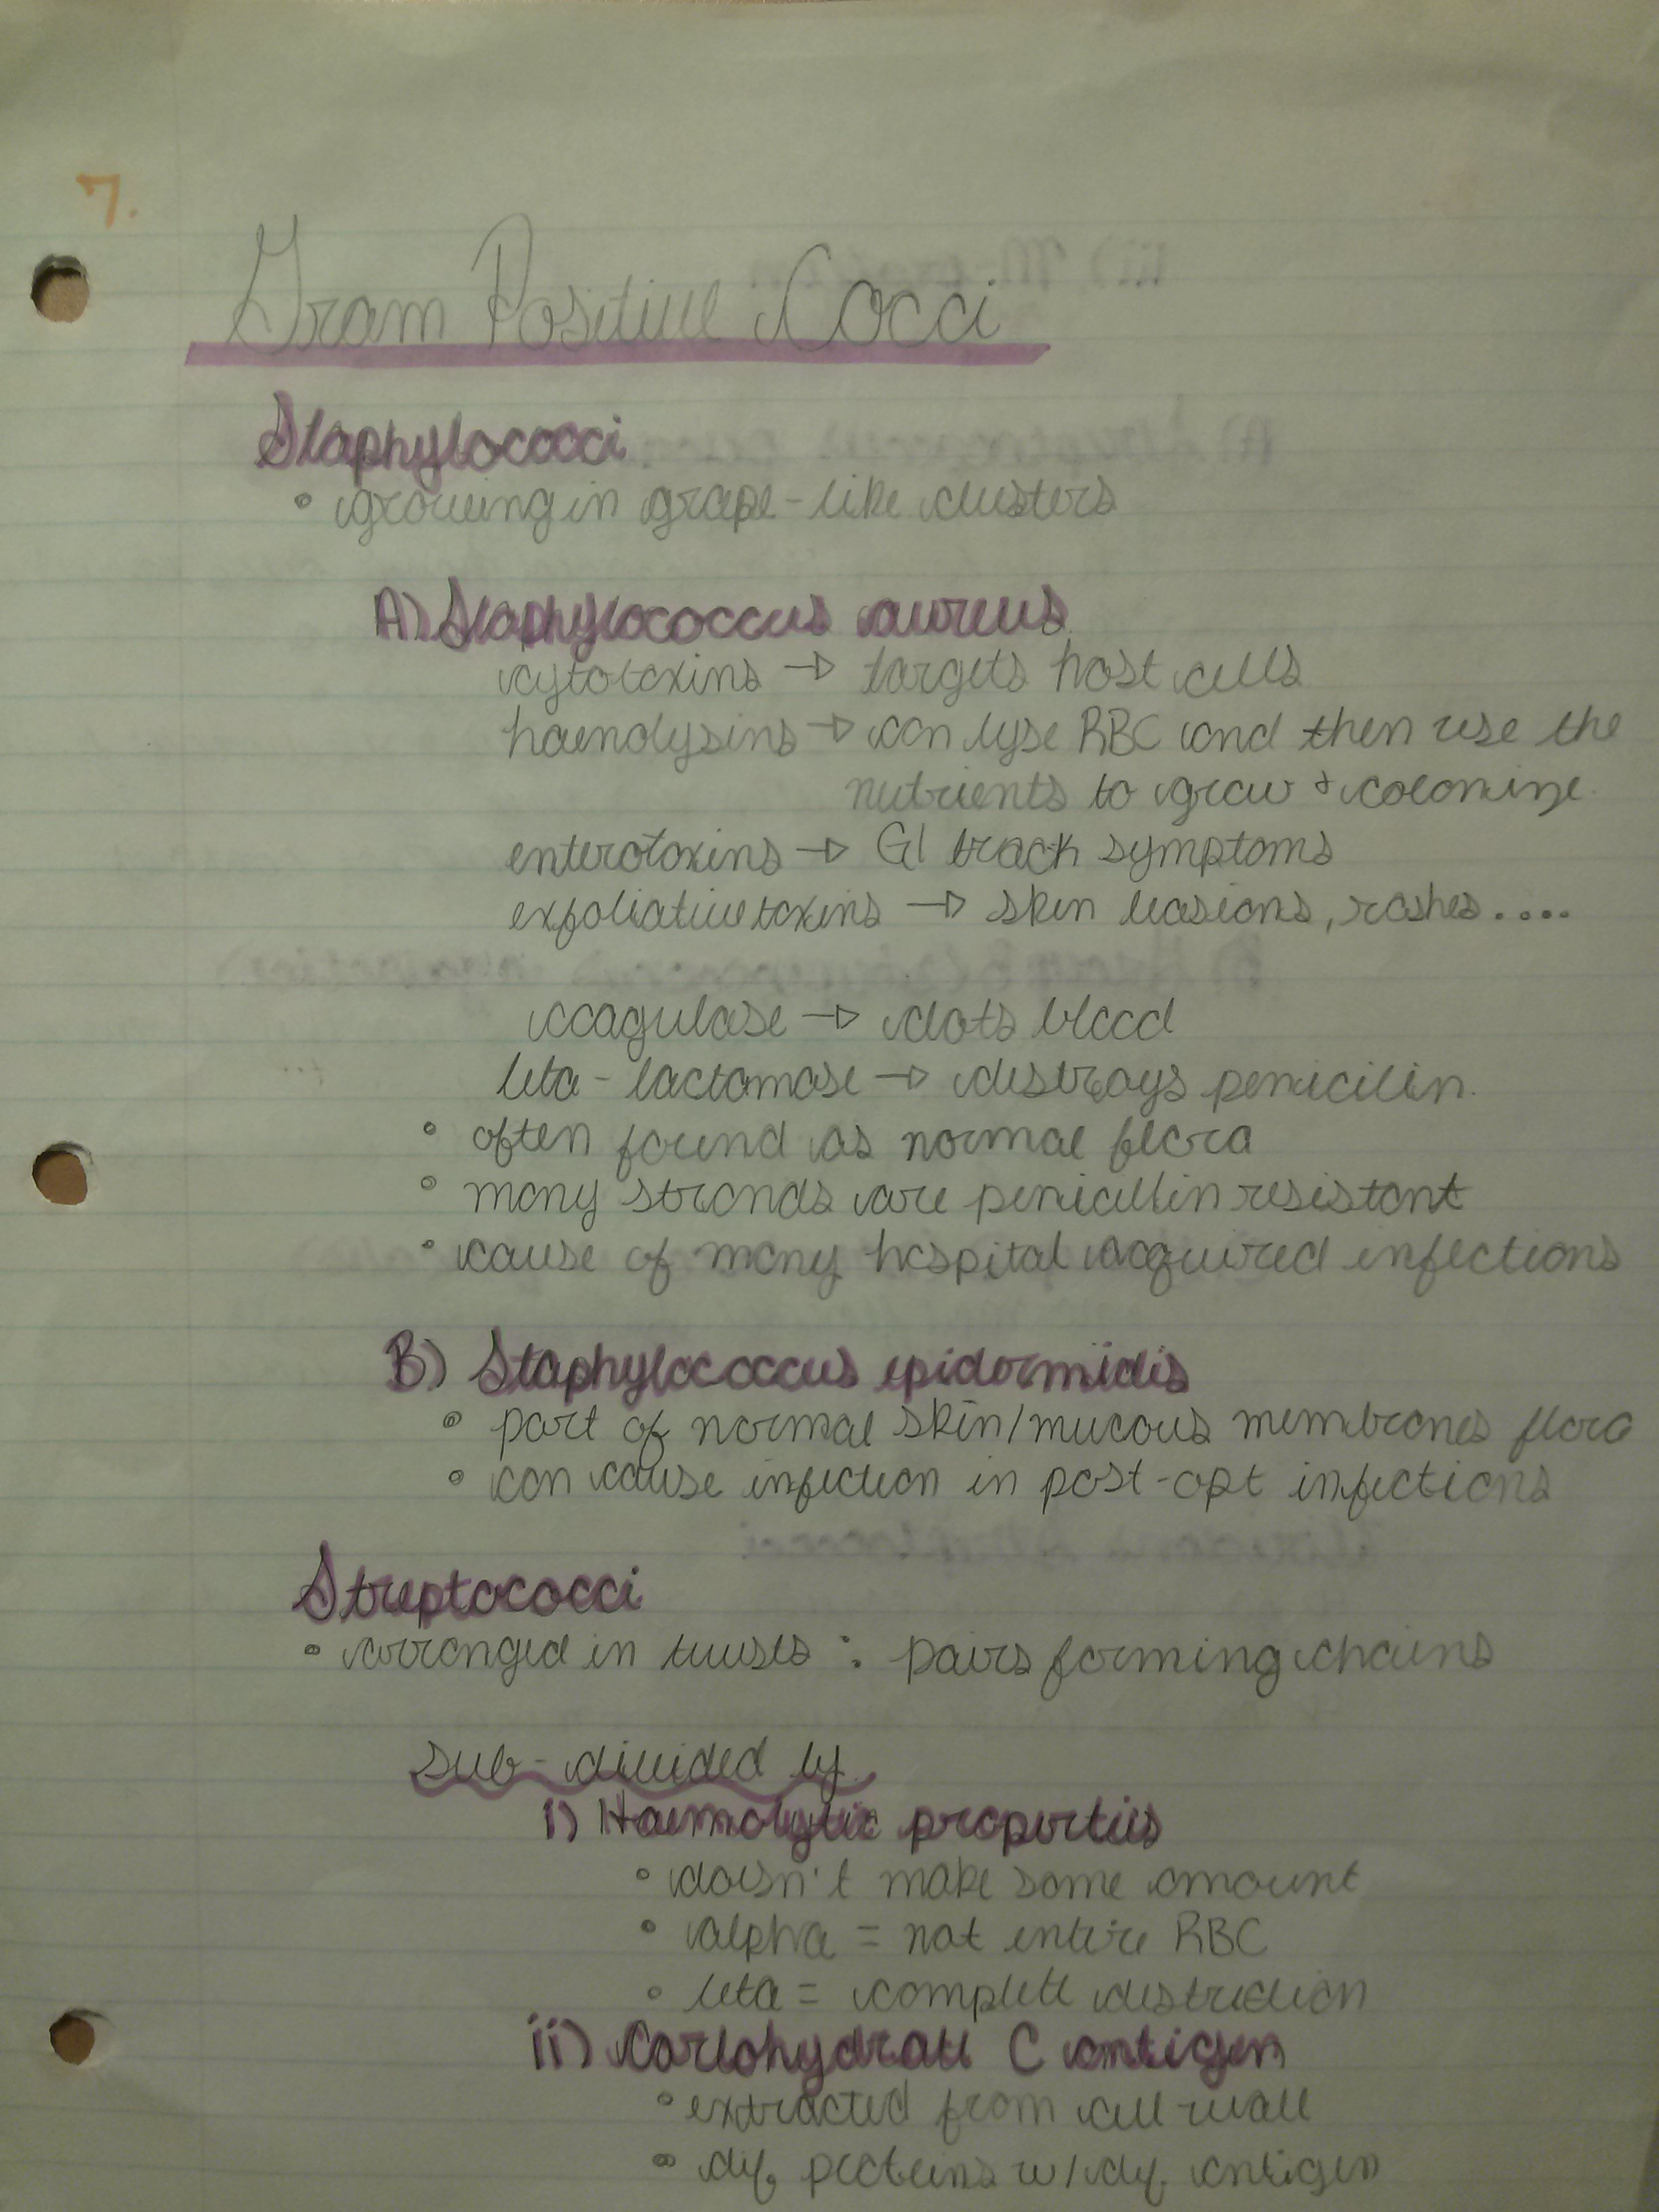 7.
Gram Positive Cocci
Staphylococci
• growing in grape-like clusters
A) Staphylococcus aureus
cytotoxins → targets host cells
haemolysins → can lyse RBC and then use the
nutrients to grow + colonize.
enterotoxins → GI track symptoms
exfoliative toxins → skin leasions, rashes....
coagulase → clots blood
beta-lactamase → destroys penicilin.
• often found as normal flora
• many strands are penicillin resistant
• cause of many hospital acquired infections
B) Staphylococcus epidermidis
• part of normal skin/mucous membranes flora
• can cause infection in post-opt infections
Streptococci
• arranged in twists : pairs forming chains
sub-divided by
i) Haemolytic properties
• doesn't make some amount
• alpha = not entire RBC
• beta = complete destruction
ii) Carbohydrate C antigen
• extracted from cell wall
• dif. proteins w/ dif. antigen